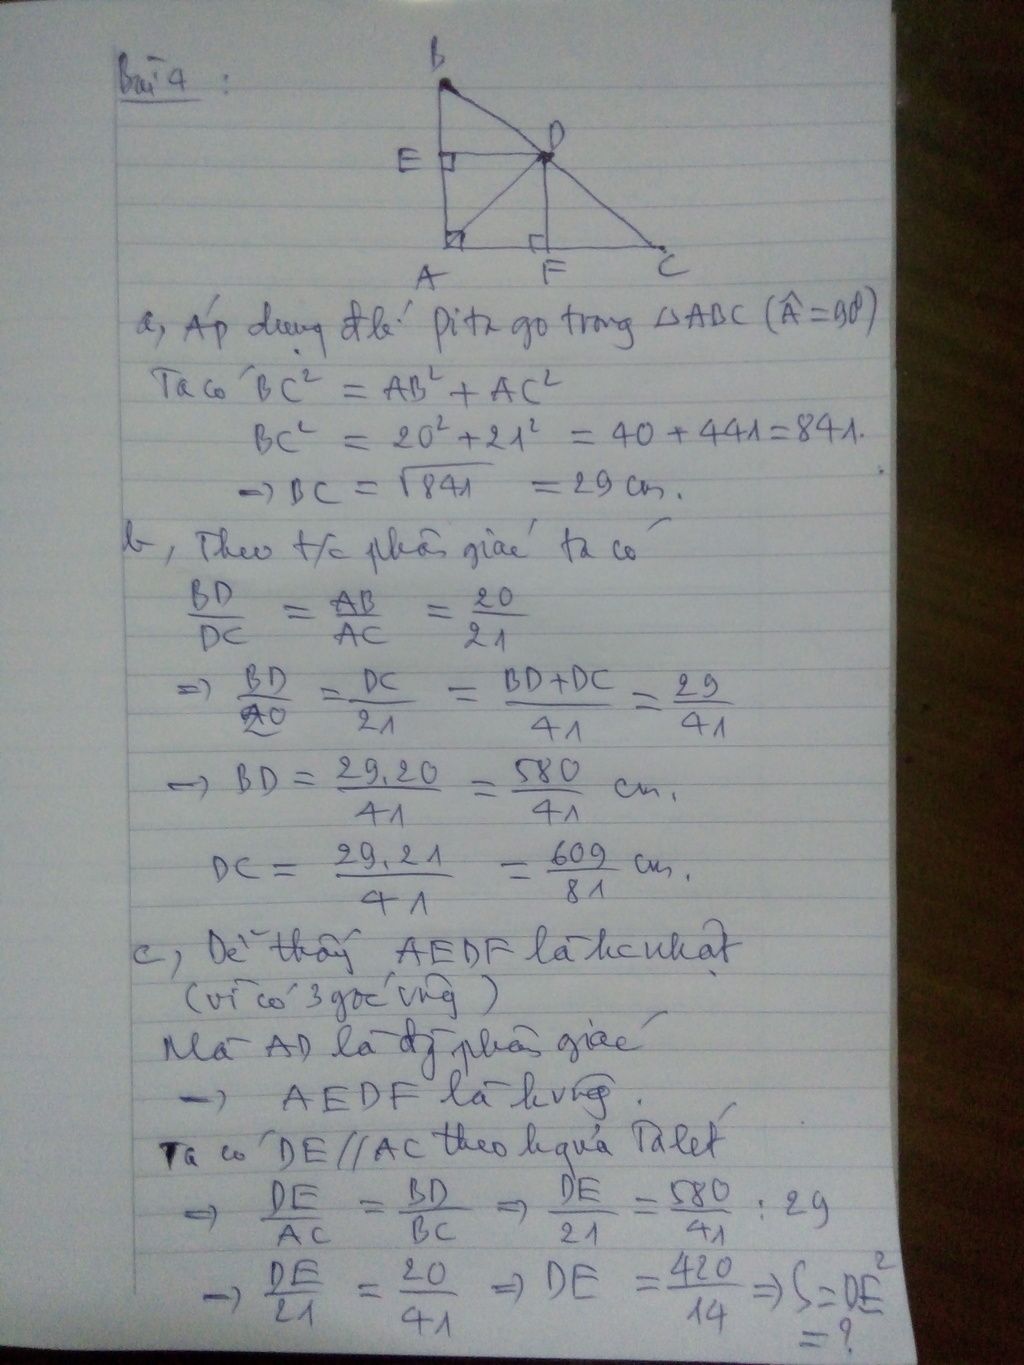 Bài 4 :
B
E
D
A
F
C
a, Áp dụng đlí Pitago trong △ABC (Â = 90°)
Ta có BC² = AB² + AC²
BC² = 20² + 21² = 40 + 441 = 841.
⇒ BC = √841 = 29 cm.
b, Theo t/c phân giác ta có
BD/DC = AB/AC = 20/21
⇒ BD/20 = DC/21 = BD+DC/41 = 29/41
⇒ BD = 29.20/41 = 580/41 cm.
DC = 29.21/41 = 609/81 cm.
c, Dễ thấy AEDF là hcnhật
(vì có 3 góc vng)
Mà AD là đg phân giác
⇒ AEDF là hvng.
Ta có DE // AC theo hquả Talet
⇒ DE/AC = BD/BC ⇒ DE/21 = 580/41 : 29
⇒ DE/21 = 20/41 ⇒ DE = 420/14 ⇒ S = DE²
= ?